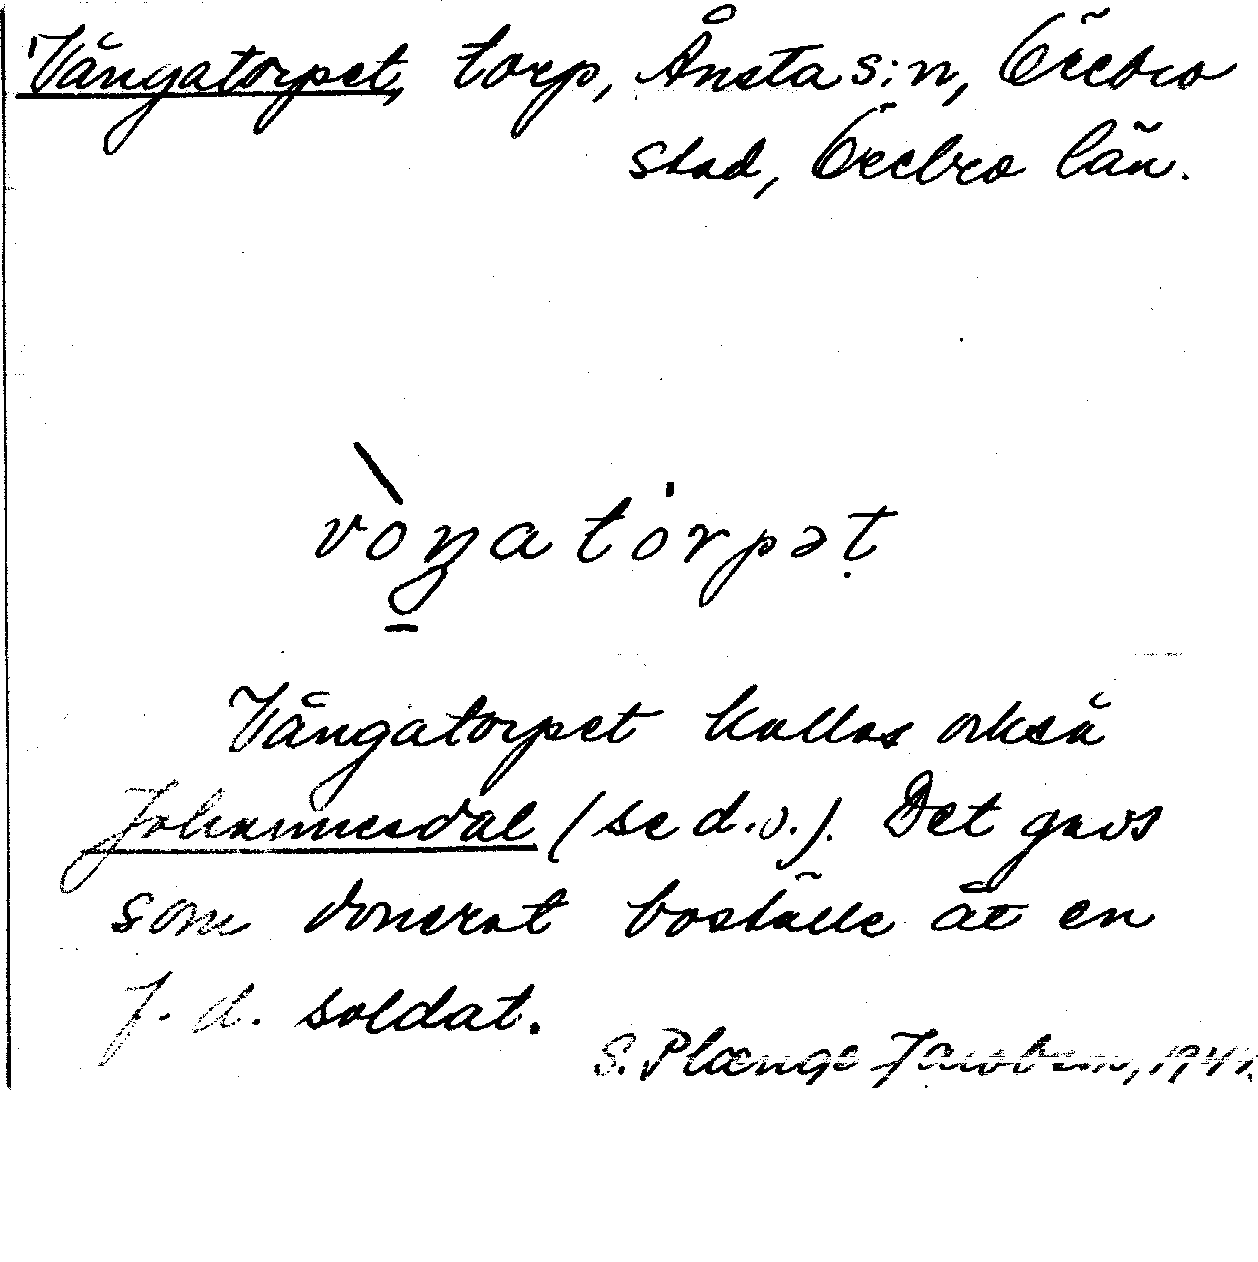 Vångatorpet, torp, Ånsta s:n, Örebro
stad, Örebro län.
vòŋatȯrpəṭ
Vångatorpet kallas också
Johannesdal (se d.o.). Det gavs
som donerat boställe åt en
f. d. soldat.
S. Plænge Jacobsen,